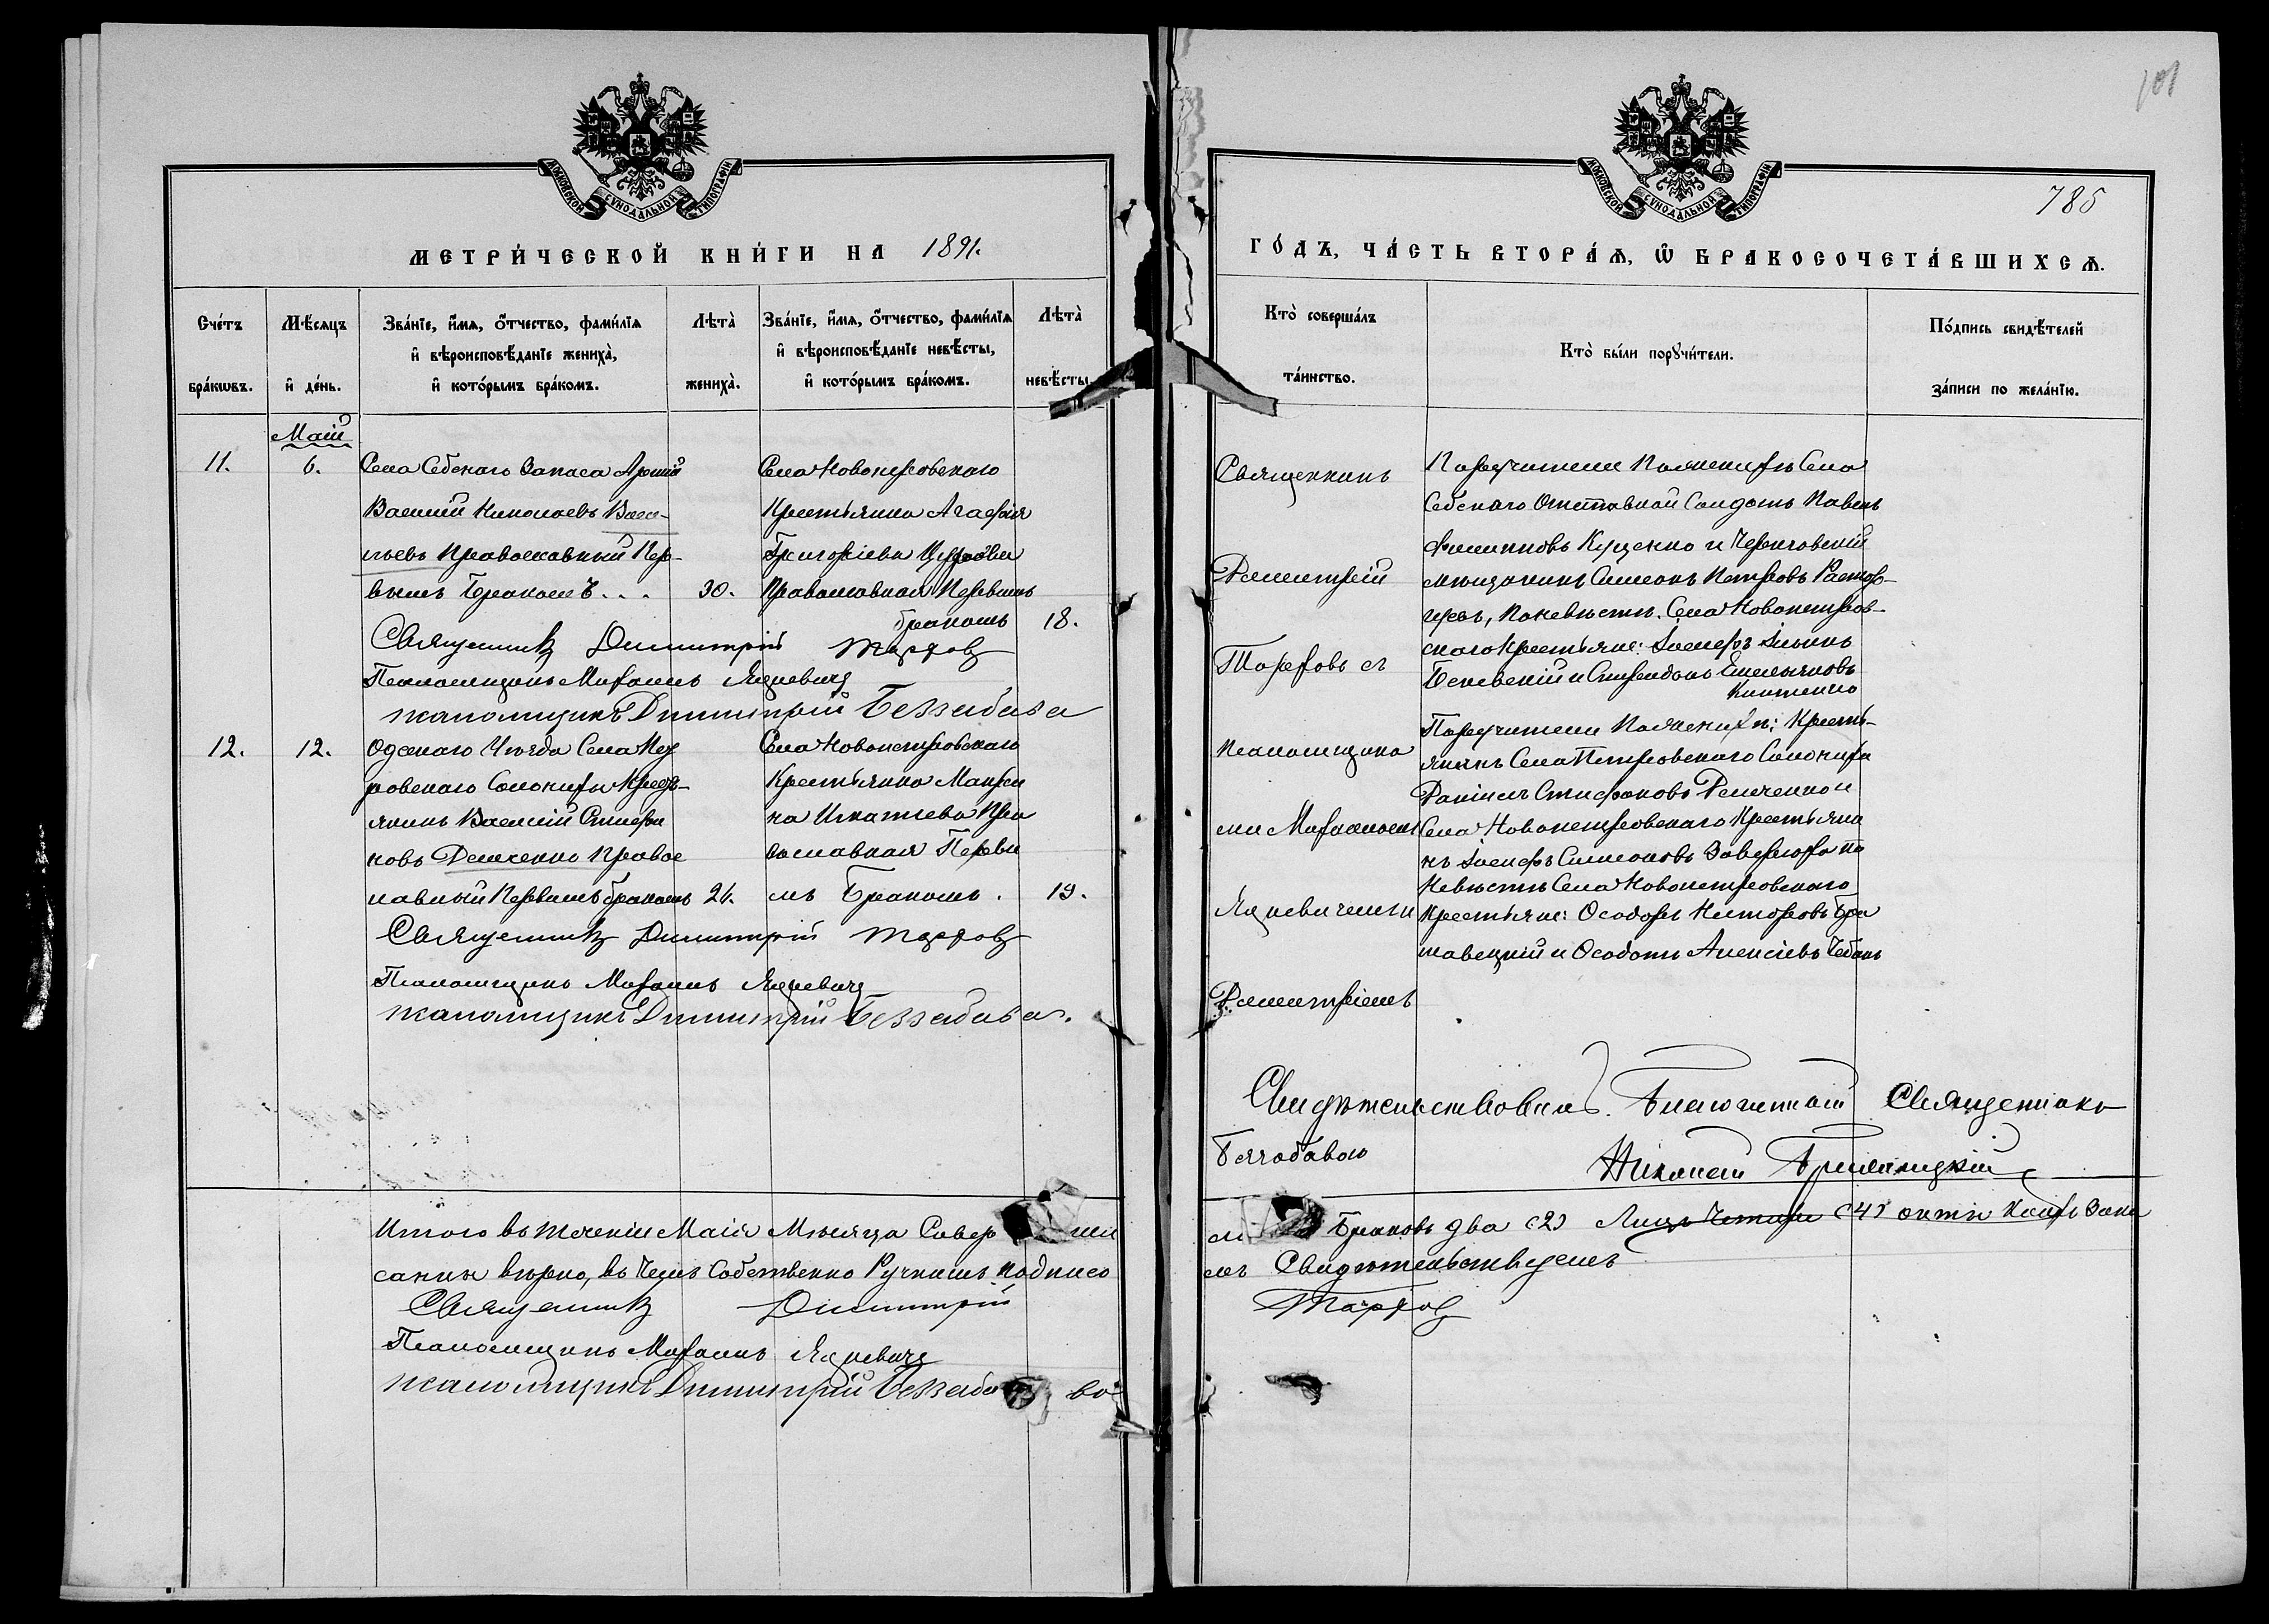 101
785
МОСКОВСКОЙ СѴНОДАЛЬНОЙ ТИПОГРАФІИ
МЕТРИ́ЧЕСКОЙ КНИ́ГИ НА 1891.
Сче́тъ бра́кѡвъ.
Мѣ́сяцъ и҆ де́нь.
Зва́нїе, и҆́мѧ, ѻ҆́тчество, фамѝлїѧ
и҆ вѣроисповѣ́данїе жениха̀,
и҆ кото́рымъ бра́комъ.
Лѣта̀
жениха̀.
Зва́нїе, и҆́мѧ, ѻ҆́тчество, фамѝлїѧ
и҆ вѣроисповѣ́данїе невѣ́сты,
и҆ кото́рымъ бра́комъ.
Лѣта̀
невѣ́сты.
Май
11.
6.
Села Себскаго Запаса Армій
Василій Николаевъ Васи-
льевъ Православный Пер-
вымъ Бракомъ...
30.
Села Новопетровскаго
Крестьянка Агафія
Григоріева
Православная Первымъ
бракомъ
18.
Священникъ Димитрій Тарфовъ
Псаломщикъ Михаилъ Яцкевичъ
Псаломщикъ Димитрій Беззабава
12.
12.
Одескаго Уѣзда Села Пет
ровскаго Солонихи Кресть-
янинъ Василій Стефа
новъ Демченко Правос
лавный Первымъ бракомъ
26.
Села Новопетровскаго
Крестьянка Макри
на Игнатьева Пра
вославная Первы
мъ Бракомъ.
19.
Священникъ Димитрій Тарфовъ
Псаломщикъ Михаилъ Яцкевичъ
Псаломщикъ Димитрій Беззабава.
Итого въ теченіи Маія Мѣсяца Совер
саннѣ вѣрно, въ чемъ Собственно Ручнымъ подписо
Священникъ Димитрій
Псаломщикъ Михаилъ Яцкевичъ
Псаломщикъ Димитрій Беззаба ва
МОСКОВСКОЙ СѴНОДАЛЬНОЙ ТИПОГРАФІИ
ГО́ДЪ, ЧА́СТЬ ВТОРА́Ѧ, Ѽ БРАКОСОЧЕТА́ВШИХСѦ.
Кто̀ соверша́лъ
та́инство.
Кто̀ бы́ли порꙋчи́тели.
По́дпись свидѣ́телей
за́писи по жела́нїю.
Священникъ
Димитрій
Тарфовъ съ
псаломщика
ми Михаиломъ
Яцкевичемъ и
Димитріемъ
Беззабавою
Поручители По женихѣ Села
Себскаго Отставной Солдатъ Павелъ
Филипповъ Куценко и Черниговскій
мѣщанинъ Симеонъ Петровъ Растор-
гуевъ, По невѣстѣ. Села Новопетров-
скаго крестьяне: Іосифъ Ильинъ
и Спиридонъ Емельяновъ
Поручители По женихѣ: Кресть-
янинъ Села Петровскаго Солонихи
Даніилъ Стефановъ Демченко и
Села Новопетровскаго Крестьяни
нъ Іосифъ Симеоновъ Заверюха по
Невѣстѣ Села Новопетровскаго
Крестьяне: Ѳеодоръ Никторовъ Бра
славецкій и Ѳеодотъ Алексіевъ Чебанъ
Свидѣтельствовалъ. Благочинный Священникъ
Николай
Браковъ два (2) Лицъ Четыре (4)
мъ Свидѣтельствуемъ
Тарфовъ